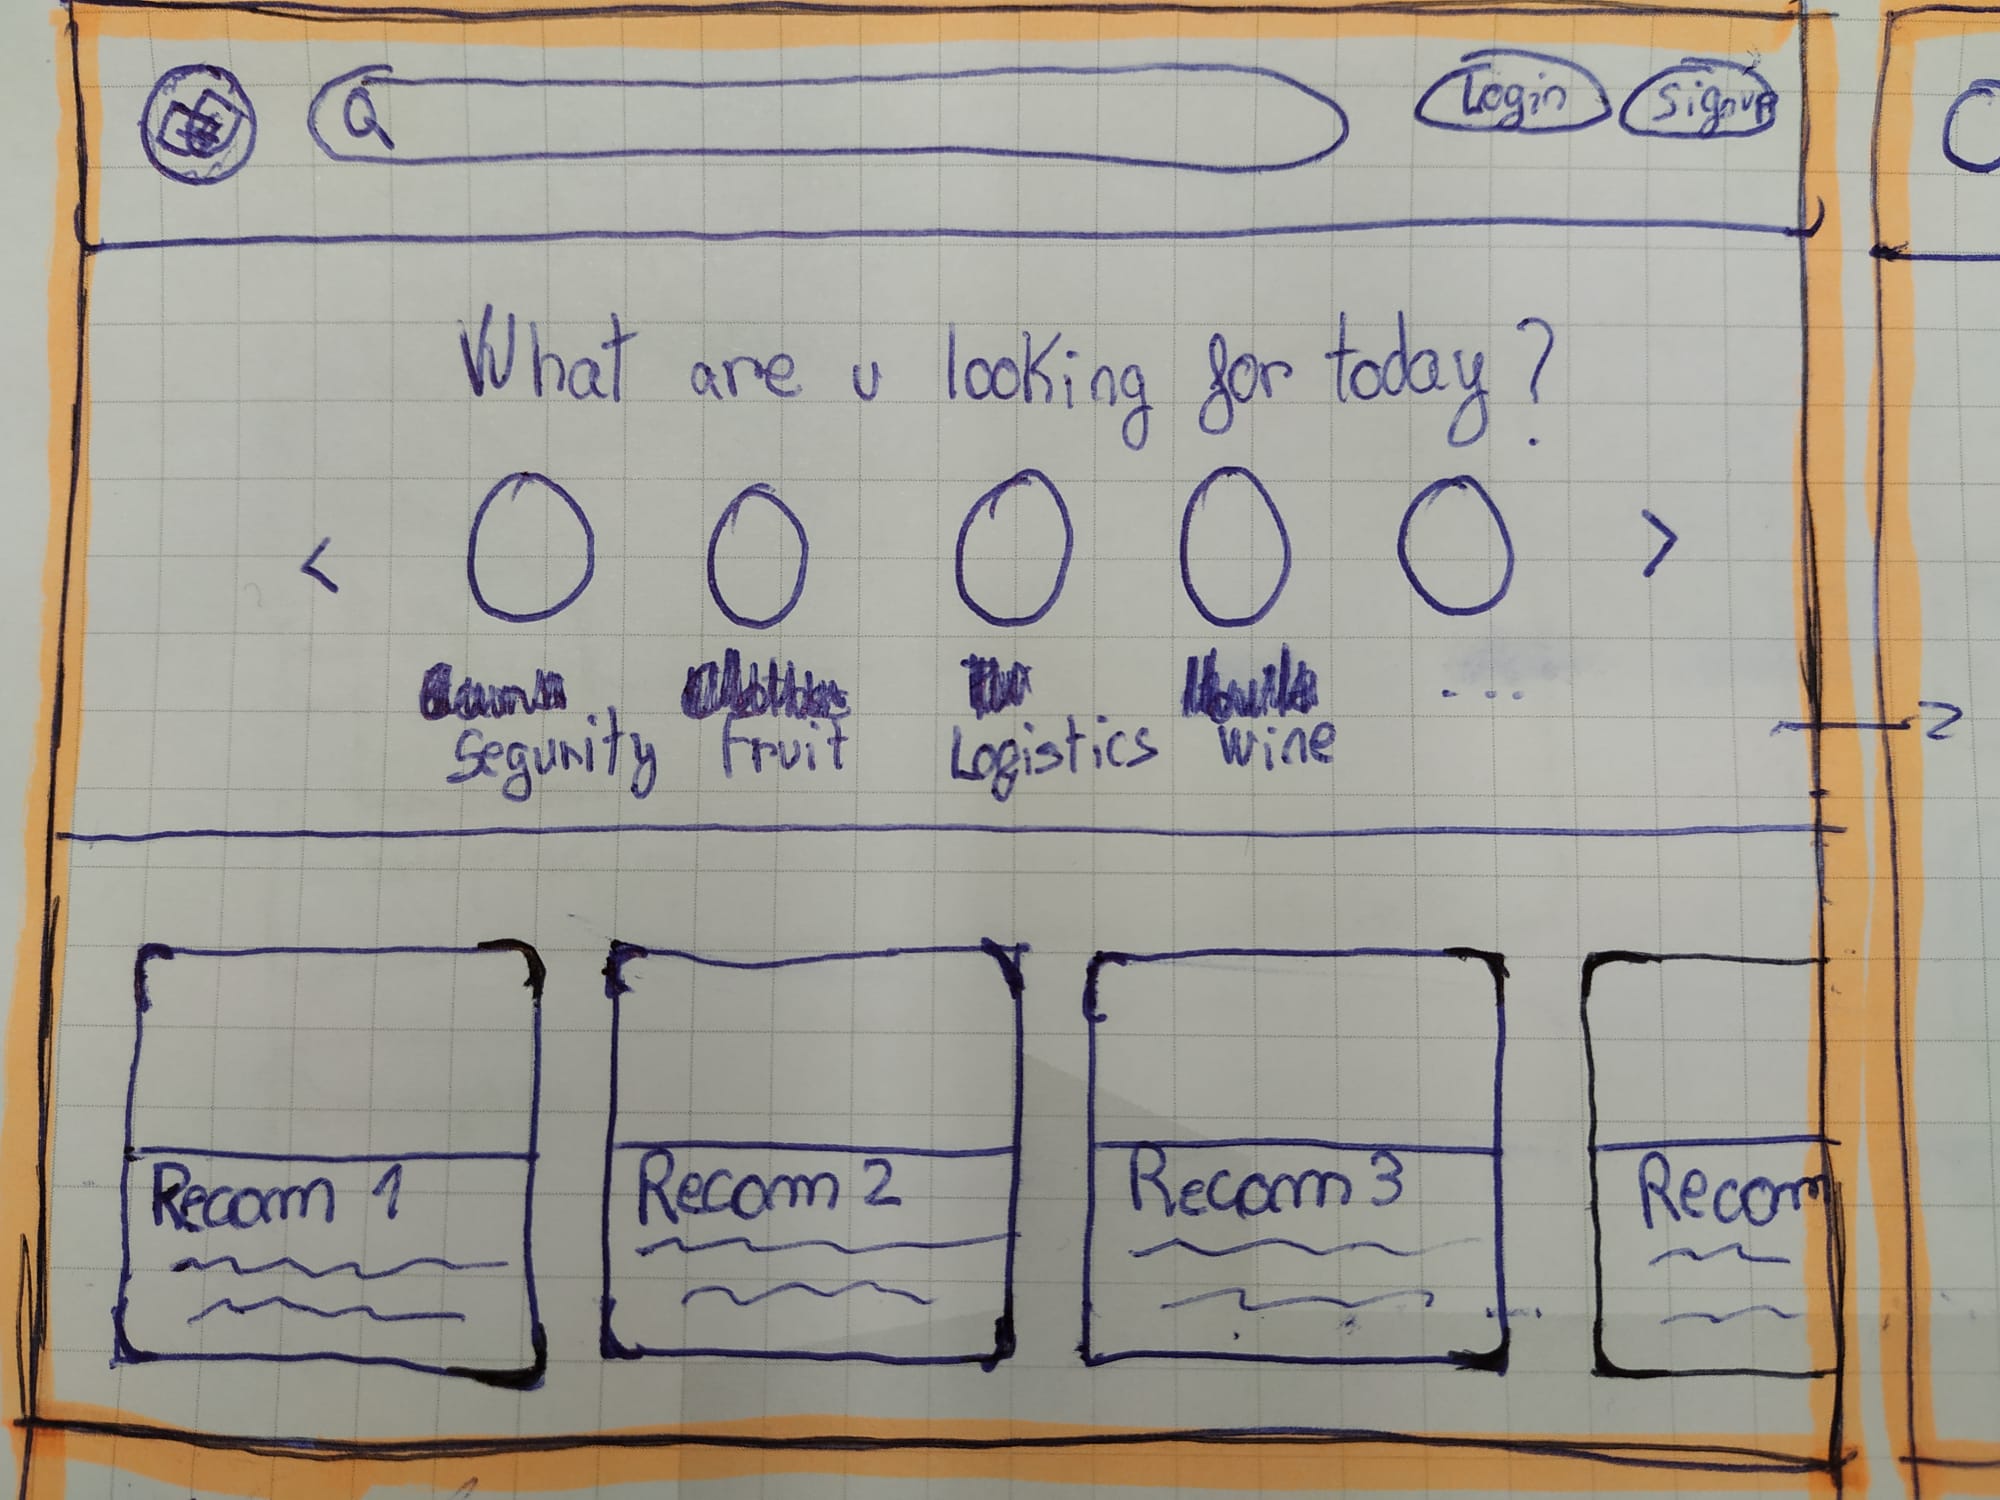 Login Signup
What are u looking for today?
< >
Segurity Fruit Logistics Wine ...
Recom 1 Recom 2 Recom 3 Recom